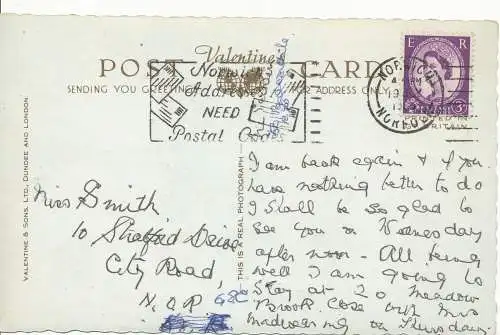 Valentine's
POST CARD
SENDING YOU GREETING
ADDRESS ONLY
Norwich
Addresses
NEED
Postal Codes
E R
NORWICH
NORFOLK
VALENTINE & SONS. LTD., DUNDEE AND LONDON
THIS IS A REAL PHOTOGRAPH
Miss Smith
10 Stratford Drive
City Road,
N.O.R 68C
I am back again & if you
have nothing better to do
I shall be so glad to
see you on Wednesday
after noon - All being
well I am going to
Stay at 20 Meadow
Brook Close with Mrs
on Thursday